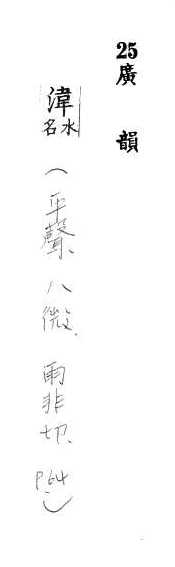 25廣韻
湋水名(平聲、八微、雨非切、P64)